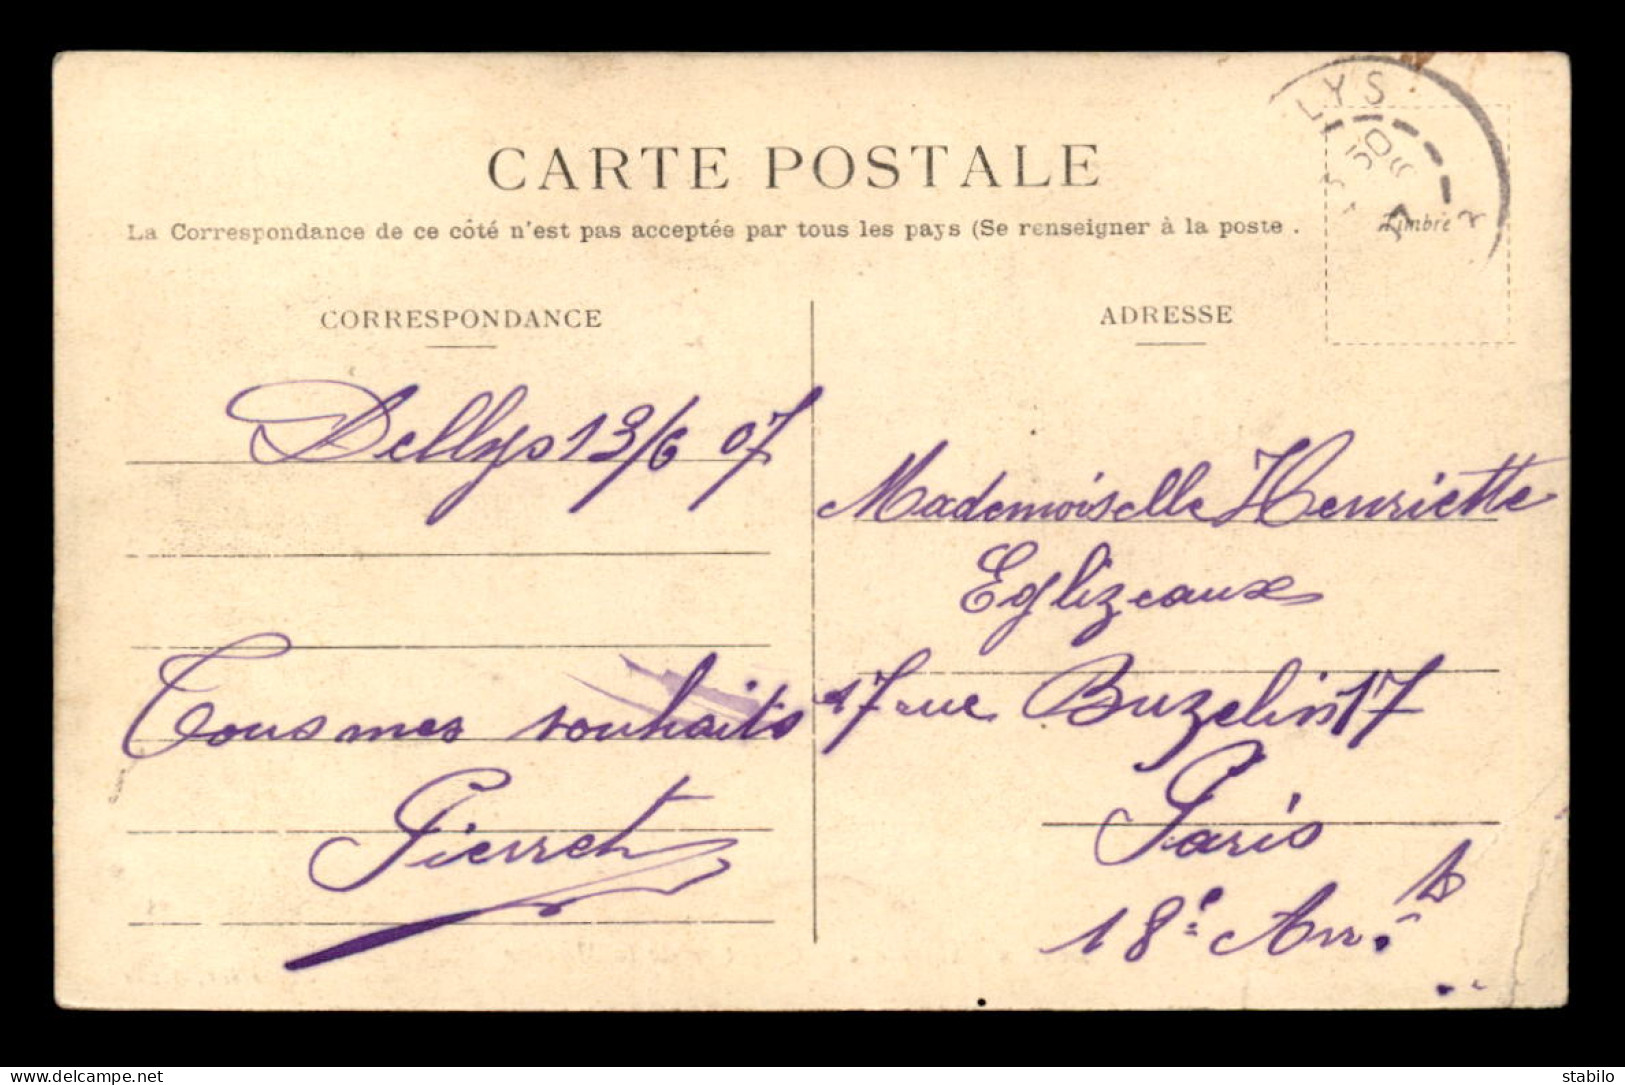 CARTE POSTALE
La Correspondance de ce côté n'est pas acceptée par tous les pays (Se renseigner à la poste .
LYS
Timbre
CORRESPONDANCE
Dellys 13/6 07
Tous mes souhaits
Pierret
ADRESSE
Mademoiselle Henriette
Eglizeaux
17 rue Buzelin 17
Paris
18e Arrt
www.delcampe.net
stabilo